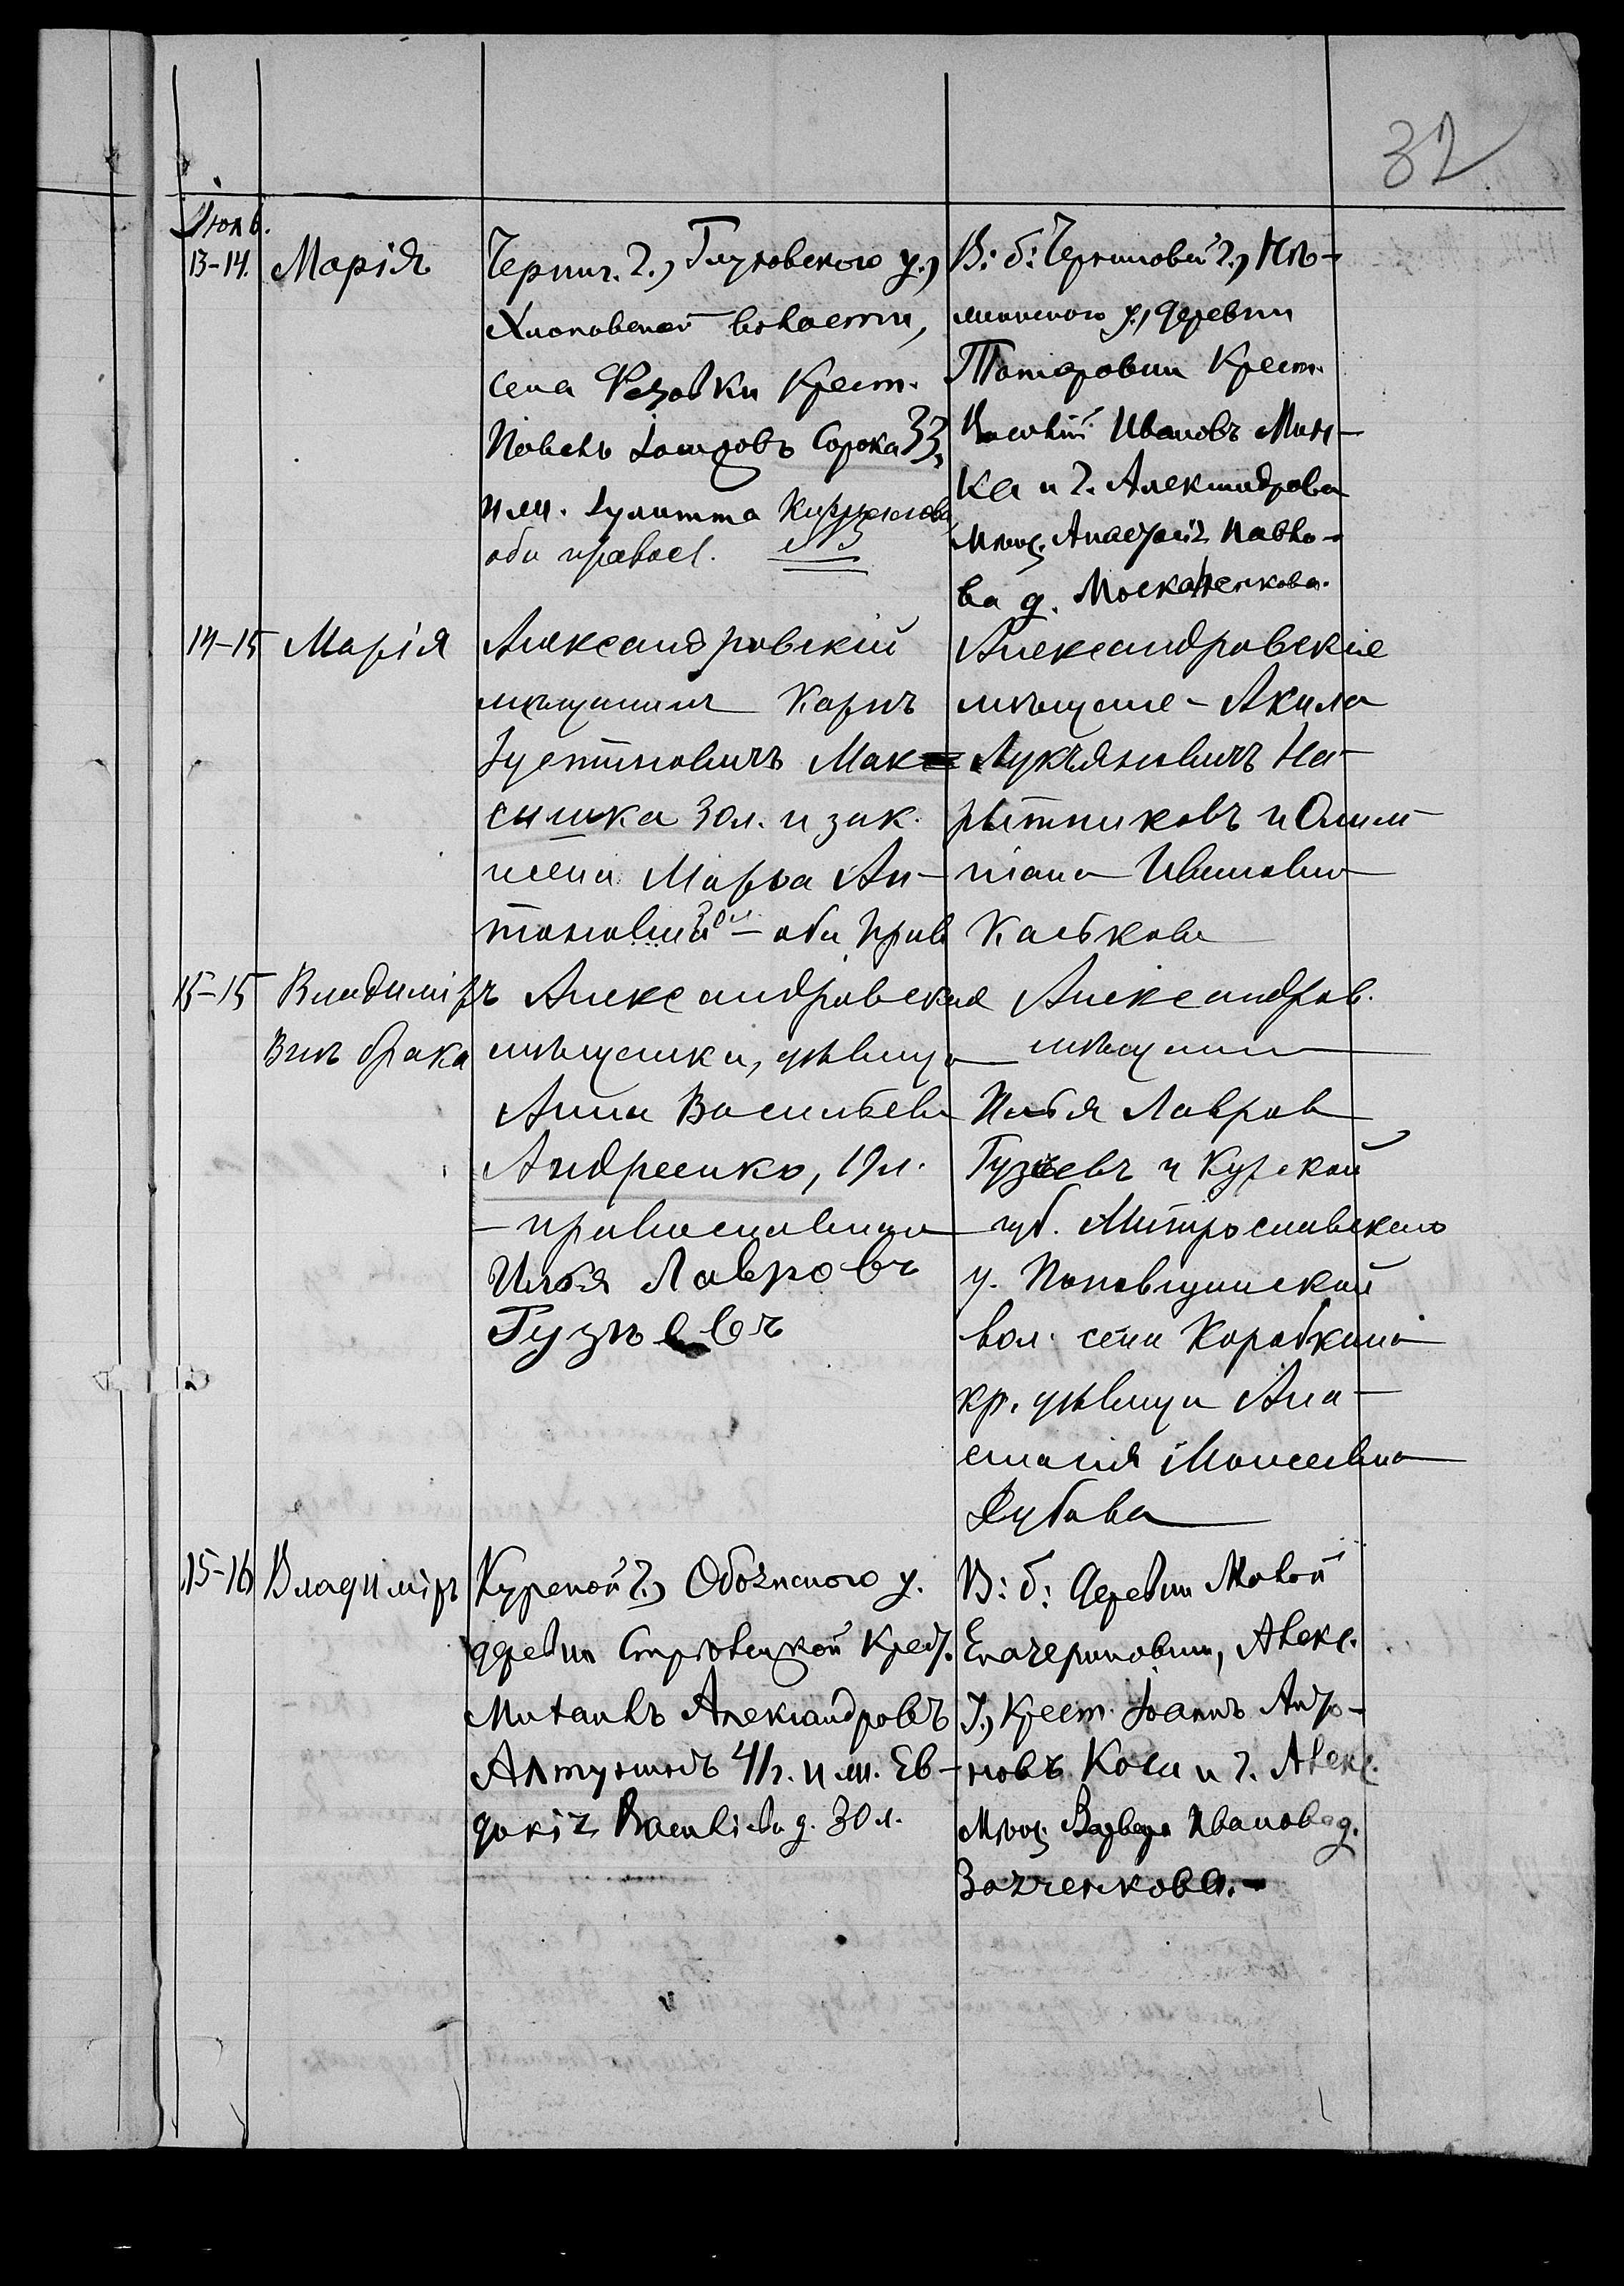 32
Июль.
13-14.
Марія
Черниг. г., Глуховскаго у.,
волости,
села Крест.
Павелъ Сорока 33
и ж. Іулитта
оби правосл.
В: б: Черниговск. г.,
у., деревни
Крест.
Василій Ивановъ Мин-
ка и г. Александровска
мѣщ. Анастасія Павло-
ва д. Москаленкова.
14-15
Марія
Александровскій
мѣщанинъ Карпъ
Іустиновичъ Мак-
сишка 30 л. и зак.
жена Марѳа Ан-
тоновна 30 л. - оби прав
Александровскіе
мѣщане - Акила
Лукъяновичъ На-
рытниковъ и Олим-
піана Ивановна
15-15
Владиміръ
Внѣ брака
Александровская
мѣщанка, дѣвица
Анна Васильева
Андреенко, 19 л.
- православная
Илья Лавровъ
Гузѣевъ
Александров.
мѣщанинъ
Илья Лавров
Гузѣевъ и Курской
губ.
у.
вол. села Коробкина
кр. дѣвица Ана-
стасія Моисеевна
Дубова
15-16
Владиміръ
Курской г., Обоянскаго у.
деревни Стрѣлецкой Крест.
Михаилъ Александровъ
Алтуховъ 41 г. и ж. Ев-
докія Васильева д. 30 л.
В: б: деревни Новой
Екатериновки, Алекс.
у., Крест. Іоаннъ Анто-
новъ Коса и г. Алекс.
мѣщ. Варвара Иванова д.
Зайченкова.-